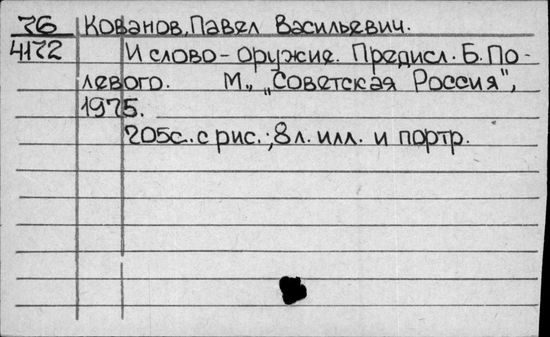 76 Кованов, Павел Васильевич.
4172 И слово - оружие. Предисл. Б. По-
левого. М., „Советская Россия",
1975.
205с. с рис.; 8 л. илл. и портр.